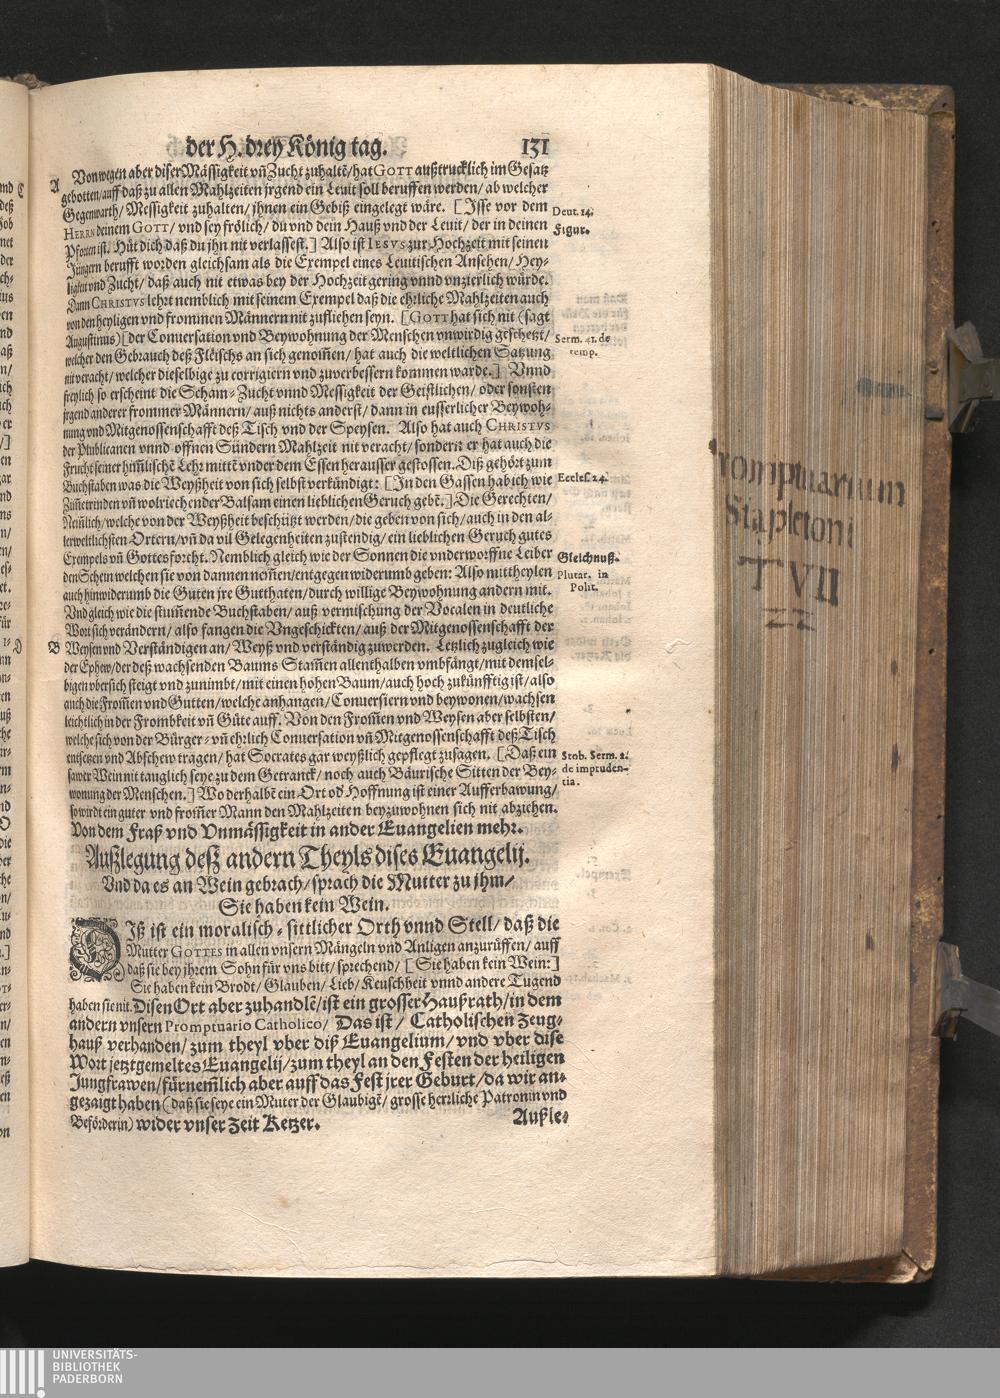 der H. drey König tag. 131
A Von wegen aber diser Mässigkeit vn̄ Zucht zuhaltē/ hat GOTT außtrucklich im Gesatz
gebotten/ auff daß zu allen Mahlzeiten jrgend ein Leuit soll beruffen werden/ ab welcher
Gegenwarth/ Messigkeit zuhalten/ jhnen ein Gebiß eingelegt wäre. [Isse vor dem
Deut. 14.
HERRN deinem GOTT/ vnd sey frölich/ du vnd dein Hauß vnd der Leuit/ der in deinen
Figur.
Pforten ist. Hüt dich daß du jhn nit verlassest.] Also ist IESVS zur Hochzeit mit seinen
Jüngern berufft worden gleichsam als die Exempel eines Leuitischen Ansehen/ Hey-
ligkeit vnd Zucht/ daß auch nit etwas bey der Hochzeit gering vnnd vnzierlich würde.
Dann CHRISTVS lehrt nemblich mit seinem Exempel daß die ehrliche Mahlzeiten auch
von den heyligen vnd frommen Männern nit zufliehen seyn. [GOTT hat sich nit (sagt
Augustinus) [der Conuersation vnd Beywohnung der Menschen vnwirdig geschetzt/
Serm. 41. de
temp.
welcher den Gebrauch deß Fleischs an sich genom̄en/ hat auch die weltlichen Satzung
nit veracht/ welcher dieselbige zu corrigiern vnd zuverbessern kommen warde.] Vnnd
freylich so erscheint die Scham- Zucht vnnd Messigkeit der Geistlichen/ oder sonsten
jrgend anderer frommer Männern/ auß nichts anderst/ dann in eusserlicher Beywoh-
nung vnd Mitgenossenschafft deß Tisch vnd der Speysen. Also hat auch CHRISTVS
der Publicanen vnnd offnen Sündern Mahlzeit nit veracht/ sondern er hat auch die
Frucht seiner him̄lischē Lehr mittē vnder dem Essen herausser gestossen. Diß gehört zum
Buchstaben was die Weyßheit von sich selbst verkündigt: [In den Gassen hab ich wie
Eccles. 24.
Zim̄etrinden vn̄ wolriechender Balsam einen lieblichen Geruch gebē.] Die Gerechten/
Nem̄lich/ welche von der Weyßheit beschützt werden/ die geben von sich/ auch in den al-
lerweltlichsten Ortern/ vn̄ da vil Gelegenheiten zustendig/ ein lieblichen Geruch gutes
Exempels vn̄ Gottesforcht. Nemblich gleich wie der Sonnen die vnderworffne Leiber
Gleichnuß.
den Schein welchen sie von dannen nem̄en/ entgegen widerumb geben: Also mittheylen
Plutar. in
Polit.
auch hinwiderumb die Guten jre Gutthaten/ durch willige Beywohnung andern mit.
Vnd gleich wie die stum̄ende Buchstaben/ auß vermischung der Vocalen in deutliche
Wort sich verändern/ also fangen die Vngeschickten/ auß der Mitgenossenschafft der
B Weysen vnd Verständigen an/ Weyß vnd verständig zuwerden. Letzlich zugleich wie
der Ephew/ der deß wachsenden Baums Stam̄en allenthalben vmbfängt/ mit demsel-
bigen vbersich steigt vnd zunimbt/ mit einen hohen Baum/ auch hoch zukünfftig ist/ also
auch die From̄en vnd Gutten/ welche anhangen/ Conuersiern vnd beywonen/ wachsen
leichtlich in der Frombkeit vn̄ Güte auff. Von den From̄en vnd Weysen aber selbsten/
welche sich von der Bürger- vn̄ ehrlich Conuersation vn̄ Mitgenossenschafft deß Tisch
entsetzen vnd Abschew tragen/ hat Socrates gar weyßlich gepflegt zusagen. [Daß ein
Stob. Serm. 2.
de impruden-
tia.
sawer Wein nit tauglich seye zu dem Getranck/ noch auch Bäurische Sitten der Bey-
wonung der Menschen.] Wo derhalbē ein Ort od' Hoffnung ist einer Aufferbawung/
so wirdt ein guter vnd from̄er Mann den Mahlzeiten beyzuwohnen sich nit abziehen.
Von dem Fraß vnd Vnmässigkeit in ander Euangelien mehr.
Außlegung deß andern Theyls dises Euangelij.
Vnd da es an Wein gebrach/ sprach die Mutter zu jhm/
Sie haben kein Wein.
DIß ist ein moralisch- sittlicher Orth vnnd Stell/ daß die
Mutter GOTTES in allen vnsern Mängeln vnd Anligen anzurüffen/ auff
daß sie bey jhrem Sohn für vns bitt/ sprechend/ [Sie haben kein Wein:]
Sie haben kein Brodt/ Glauben/ Lieb/ Keuschheit vnnd andere Tugend
haben sie nit. Disen Ort aber zuhandlē/ ist ein grosser Haußrath/ in dem
andern vnsern Promptuario Catholico/ Das ist/ Catholischen Zeug-
hauß verhanden/ zum theyl vber diß Euangelium/ vnd vber dise
Wort jetztgemeltes Euangelij/ zum theyl an den Festen der heiligen
Jungfrawen/ fürnem̄lich aber auff das Fest jrer Geburt/ da wir an-
gezaigt haben (daß sie seye ein Muter der Glaubigē/ grosse herrliche Patronin vnd
Beförderin) wider vnser Zeit Ketzer.
Außle-
Promptuarium
Stapletoni
T VII
UNIVERSITÄTS-
BIBLIOTHEK
PADERBORN